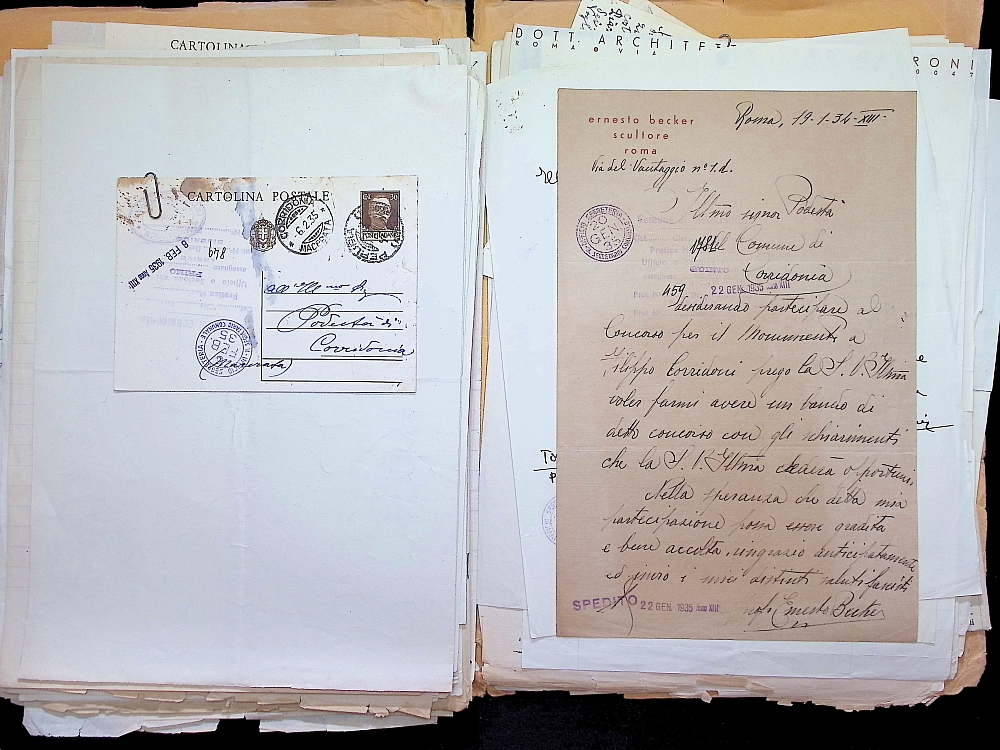 CARTOLINA
CARTOLINA POSTALE
CORRIDONIA
6.2.35
MACERATA
8 FEB. 1935 Anno XIII
849
PRIMO
Podestà di
Corridonia
(Macerata)
DOTT. ARCHITET
ROMA VIA
RONI
ernesto becker
scultore
roma
Via del Vantaggio n° 1.d.
Roma, 19-1-34-XIII-
Illmo signor Podestà
del Comune di
Corridonia
1784
QUINTO
459
22 GEN. 1935 Anno XIII
desiderando partecipare al
Concorso per il Monumento a
Filippo Corridoni prego la S. V. Illma
voler farmi avere un bando di
detto concorso con gli schiarimenti
che la S. V. Illma crederà opportuni
Nella speranza che detta mia
partecipazione possa essere gradita
e bene accolta, ringrazio anticipatamente
ed invio i miei distinti saluti fascisti
Ernesto Becker
SPEDITO 22 GEN. 1935 Anno XIII